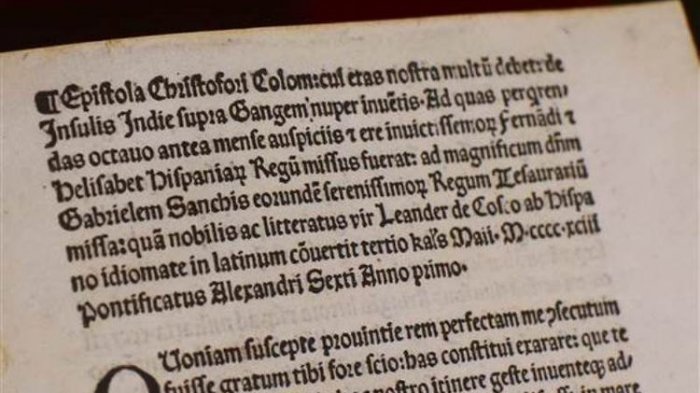 ¶ Epistola Christofori Colom: cui etas nostra multū debet: de
Insulis Indie supra Gangem nuper inuētis. Ad quas perqren-
das octauo antea mense auspiciis ⁊ ere inuictissemoꝝ Fernādi ⁊
Helisabet Hispaniaꝝ Regū missus fuerat: ad magnificum dn̄m
Gabrielem Sanchis eorundē serenissimoꝝ Regum Tesaurariū
missa: quā nobilis ac litteratus vir Leander de Cosco ab Hispa
no idiomate in latinum cōuertit tertio kaƚs Maii. M.cccc.xciii
Pontificatus Alexandri Sexti Anno primo.
Quoniam suscepte prouintie rem perfectam me ꝯsecutum
fuisse gratum tibi fore scio: has constitui exarare: que te
nostro itinere geste inuenteqꝫ ad-
in mare